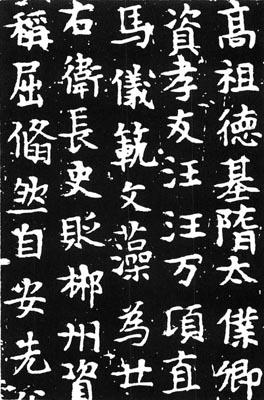 高祖德基隋太僕卿
資孝友汪汪万頃直
馬儀範文藻為廿
右衛長史貶郴州資
稱屈翛然自安先